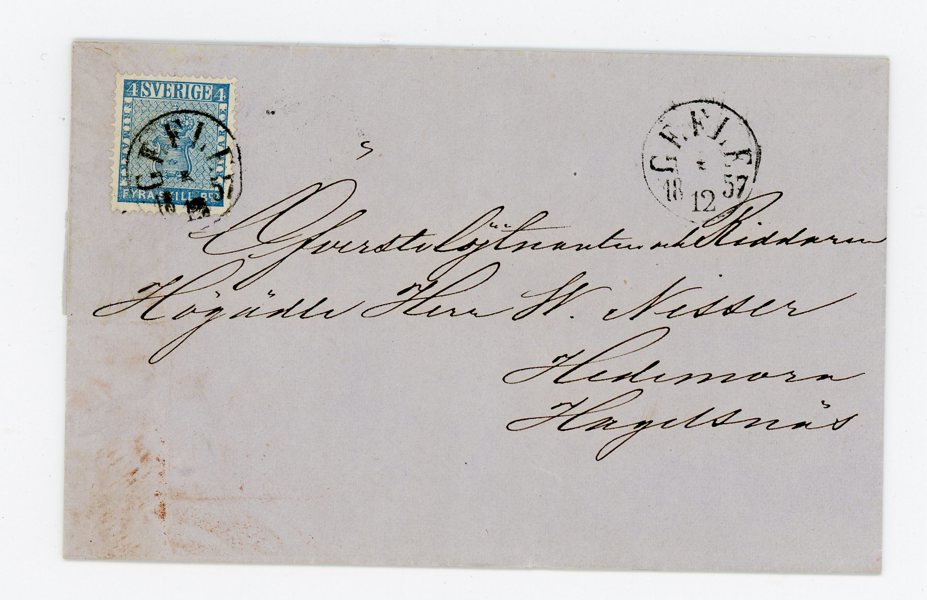 4 SVERIGE 4
FYRA SKILL. BCO
GEFLE
12
57
GEFLE
18 57
12
Öfverstelöjtnanten och Riddaren
Högädle Herr W. Nisser
Hedemora
Hagelsnäs